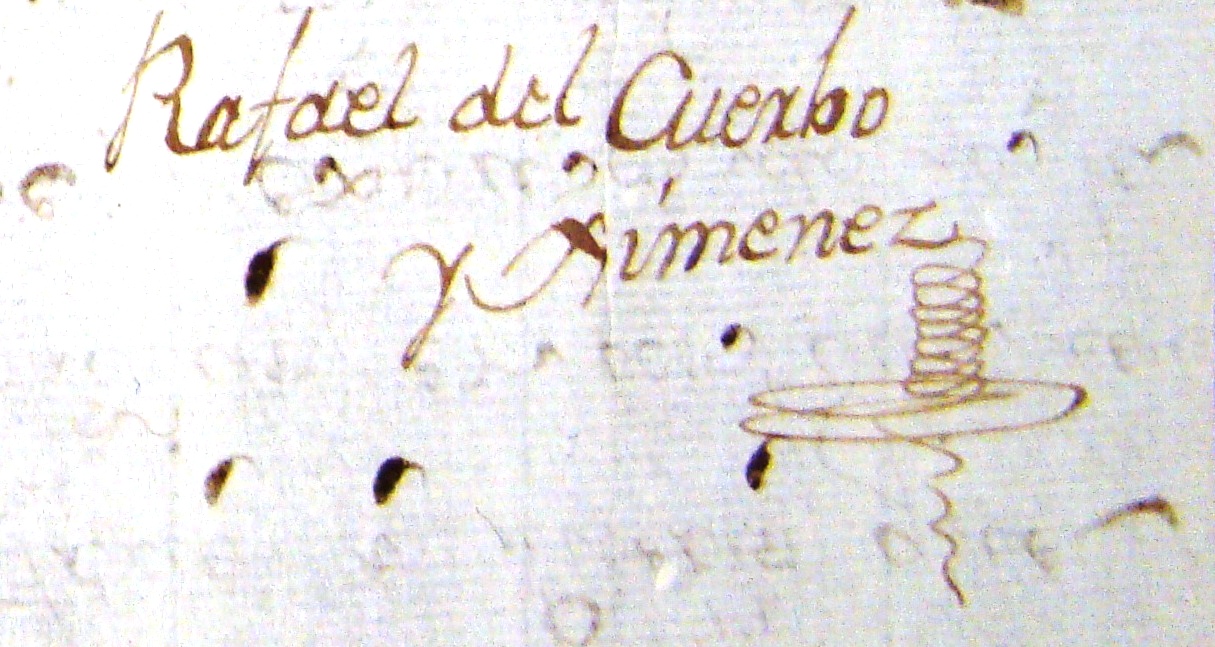 Rafael del Cuerbo
y Ximenez